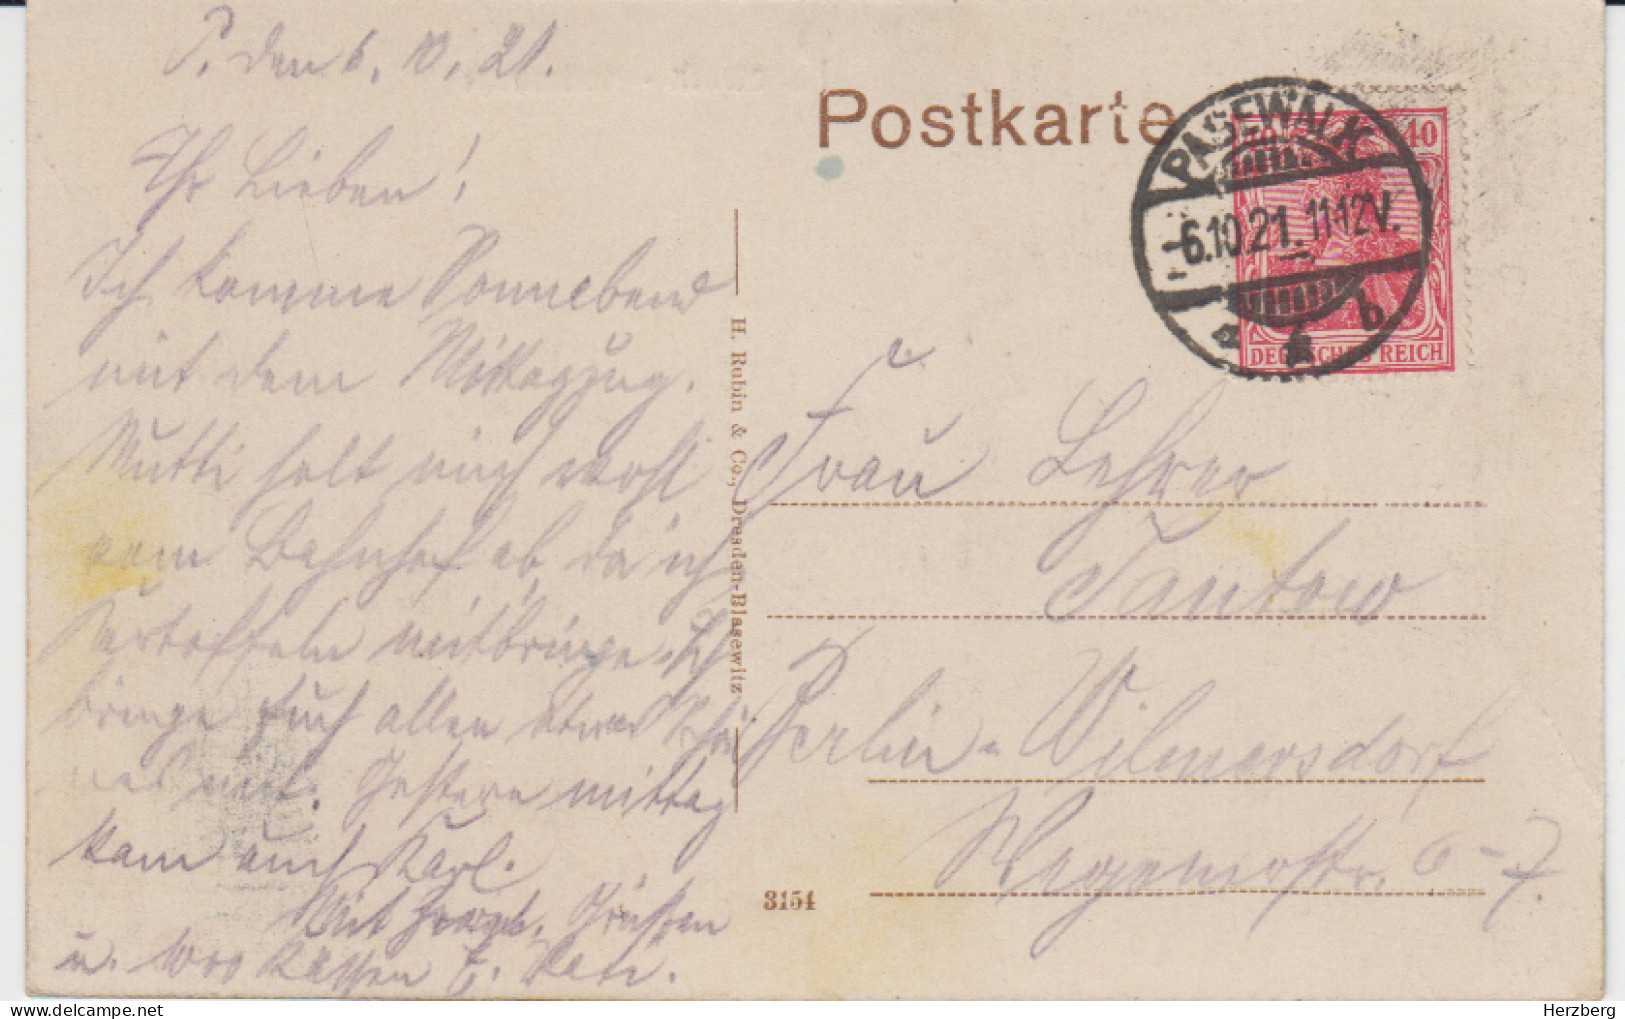 P. den 6. 10. 21.
Ihr Lieben!
Ich komme Sonnabend
mit dem Mittagzug.
Mutti holt mich wohl
vom Bahnhof ab, da ich
Kartoffeln mitbringe. Ich
bringe Euch allen etwas Schö
nes mit. Gestern mittag
kam auch Karl.
Mit Grüßen
u. 1000 Küssen E.
Postkarte
PASEWALK
-6.10.21.11-12V.
* b
40
DEUTSCHES REICH
Frau Lehrer
Tantow
Berlin-Wilmersdorf
Wegenerstr. 6-7.
H. Rubin & Co., Dresden-Blasewitz
3154
Herzberg